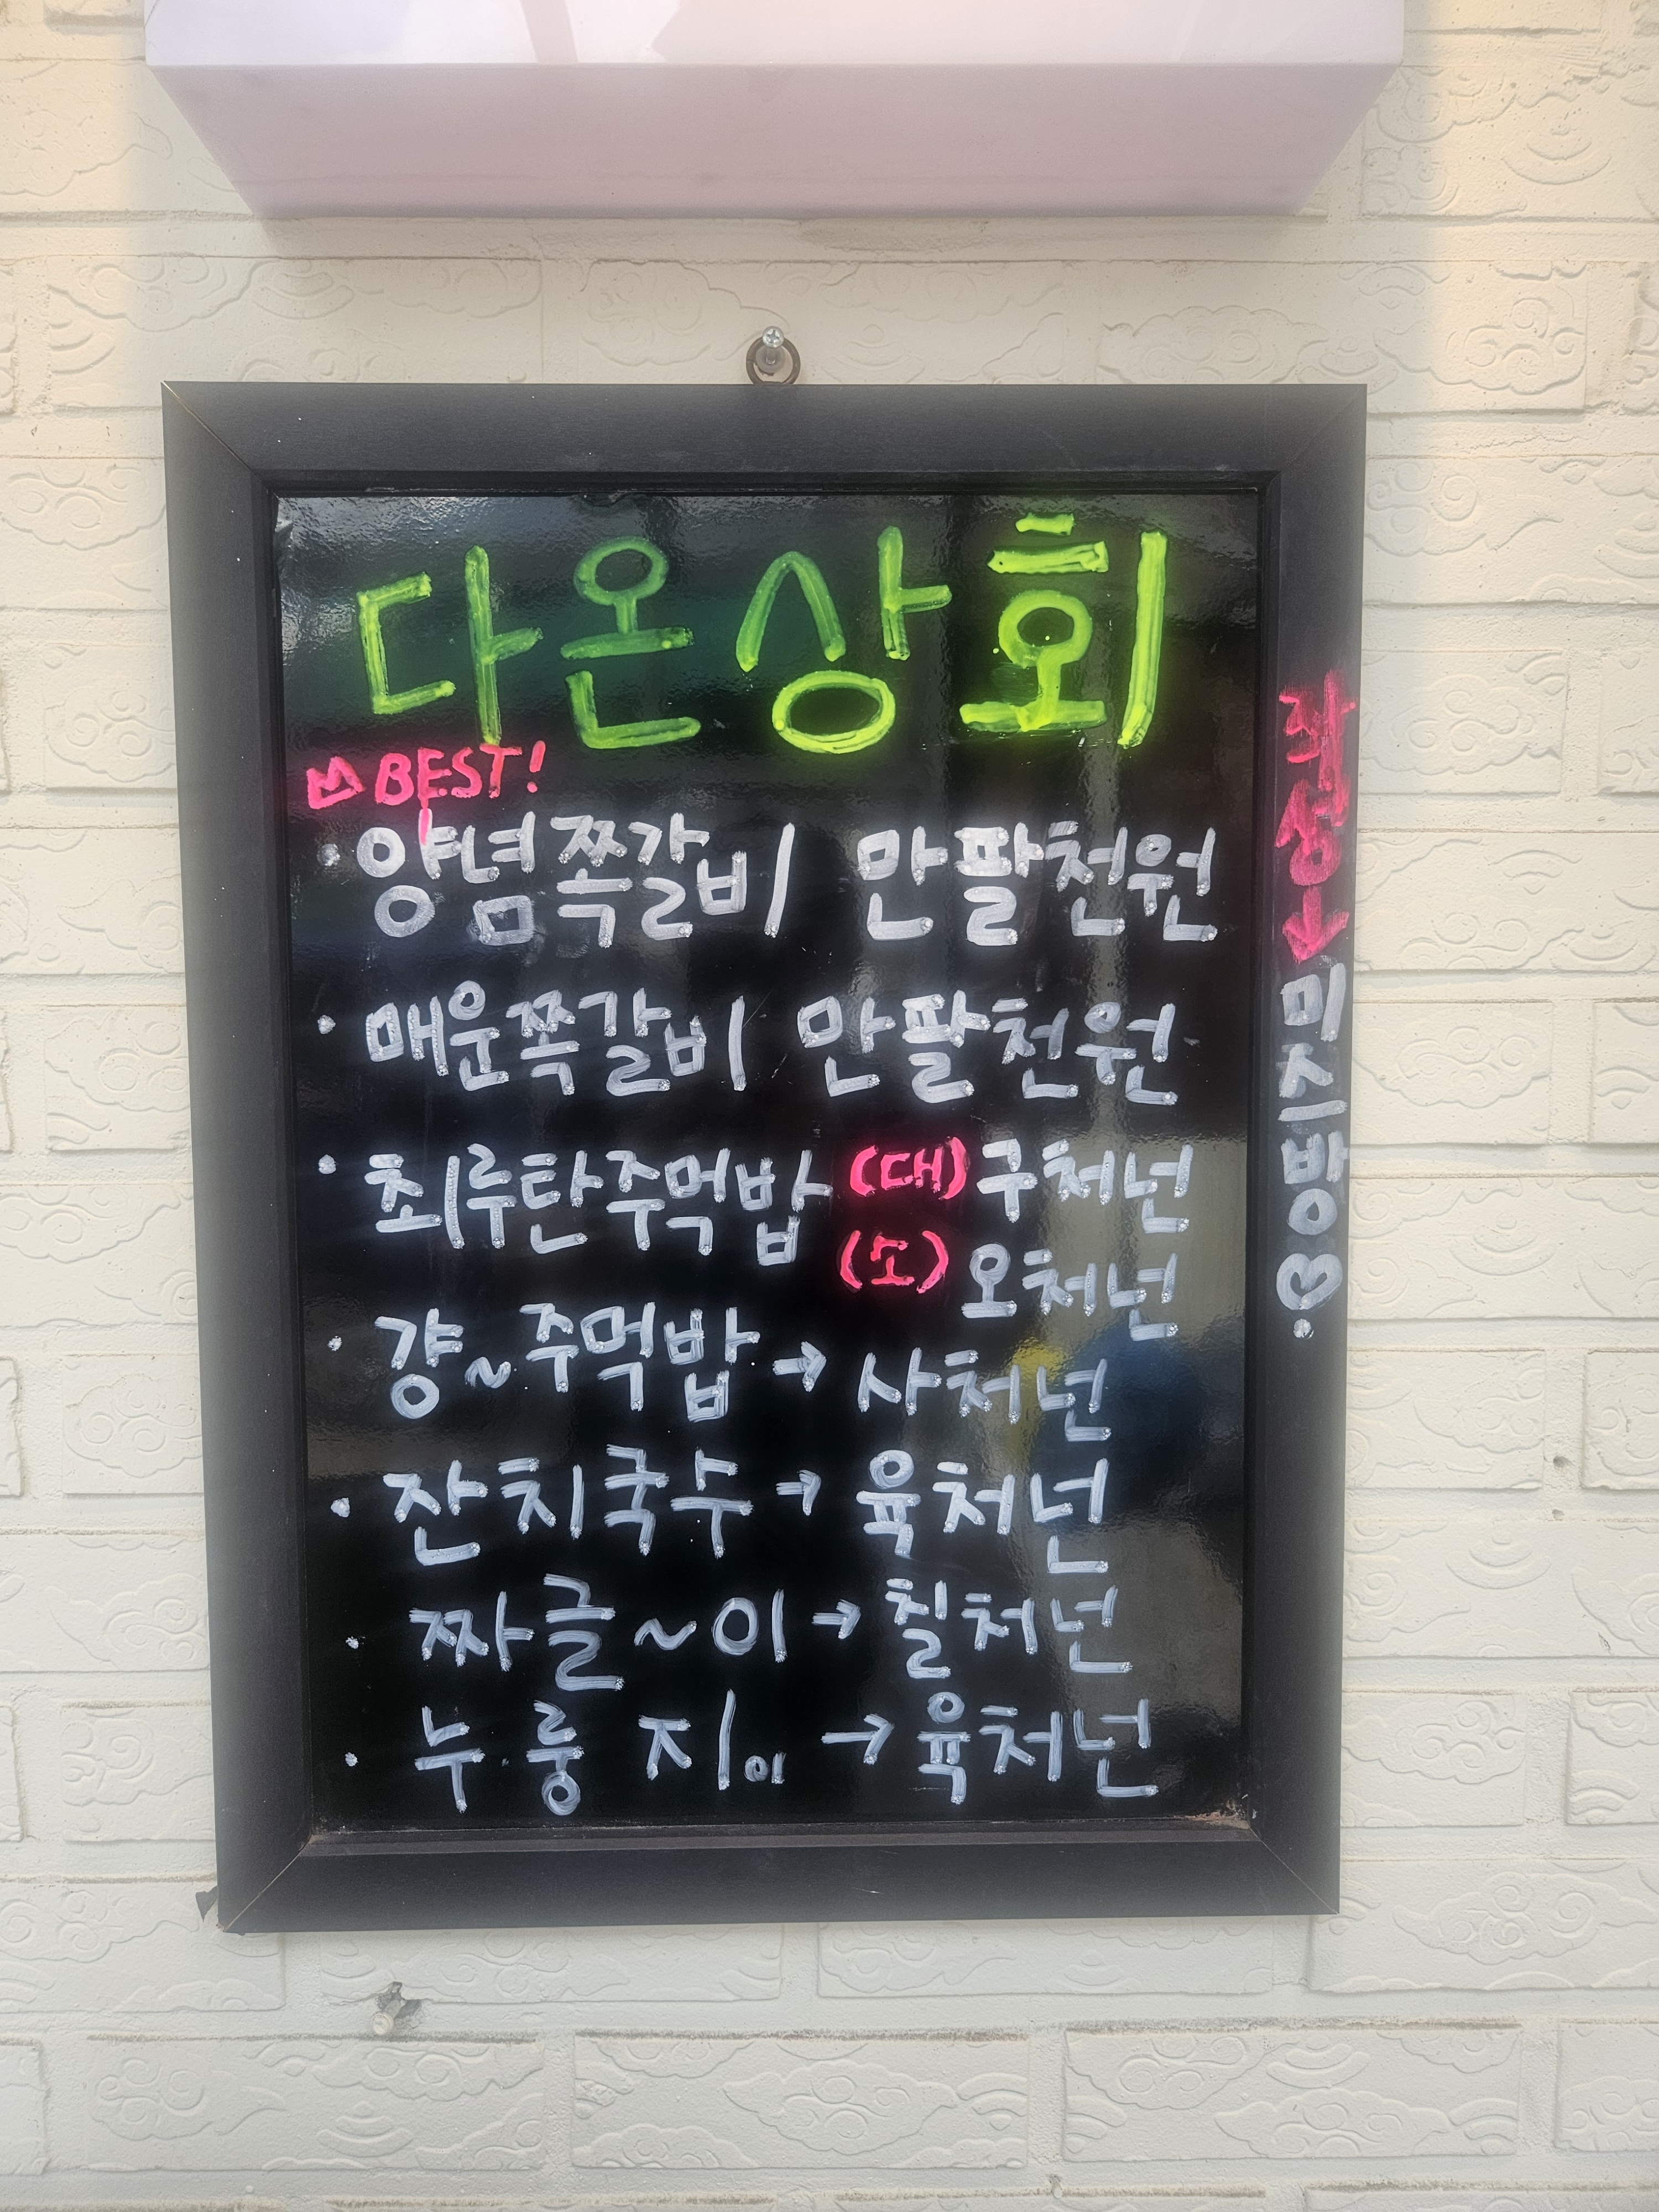 다온상회
BEST!
· 양념쪽갈비 만팔천원
· 매운쪽갈비 만팔천원
· 최루탄주먹밥 (대) 구처넌
(소) 오처넌
· 걍~주먹밥 → 사처넌
· 잔치국수 → 육처넌
· 짜글~이 → 칠처넌
· 누룽지이 → 육처넌
작성↓
미지방♡.